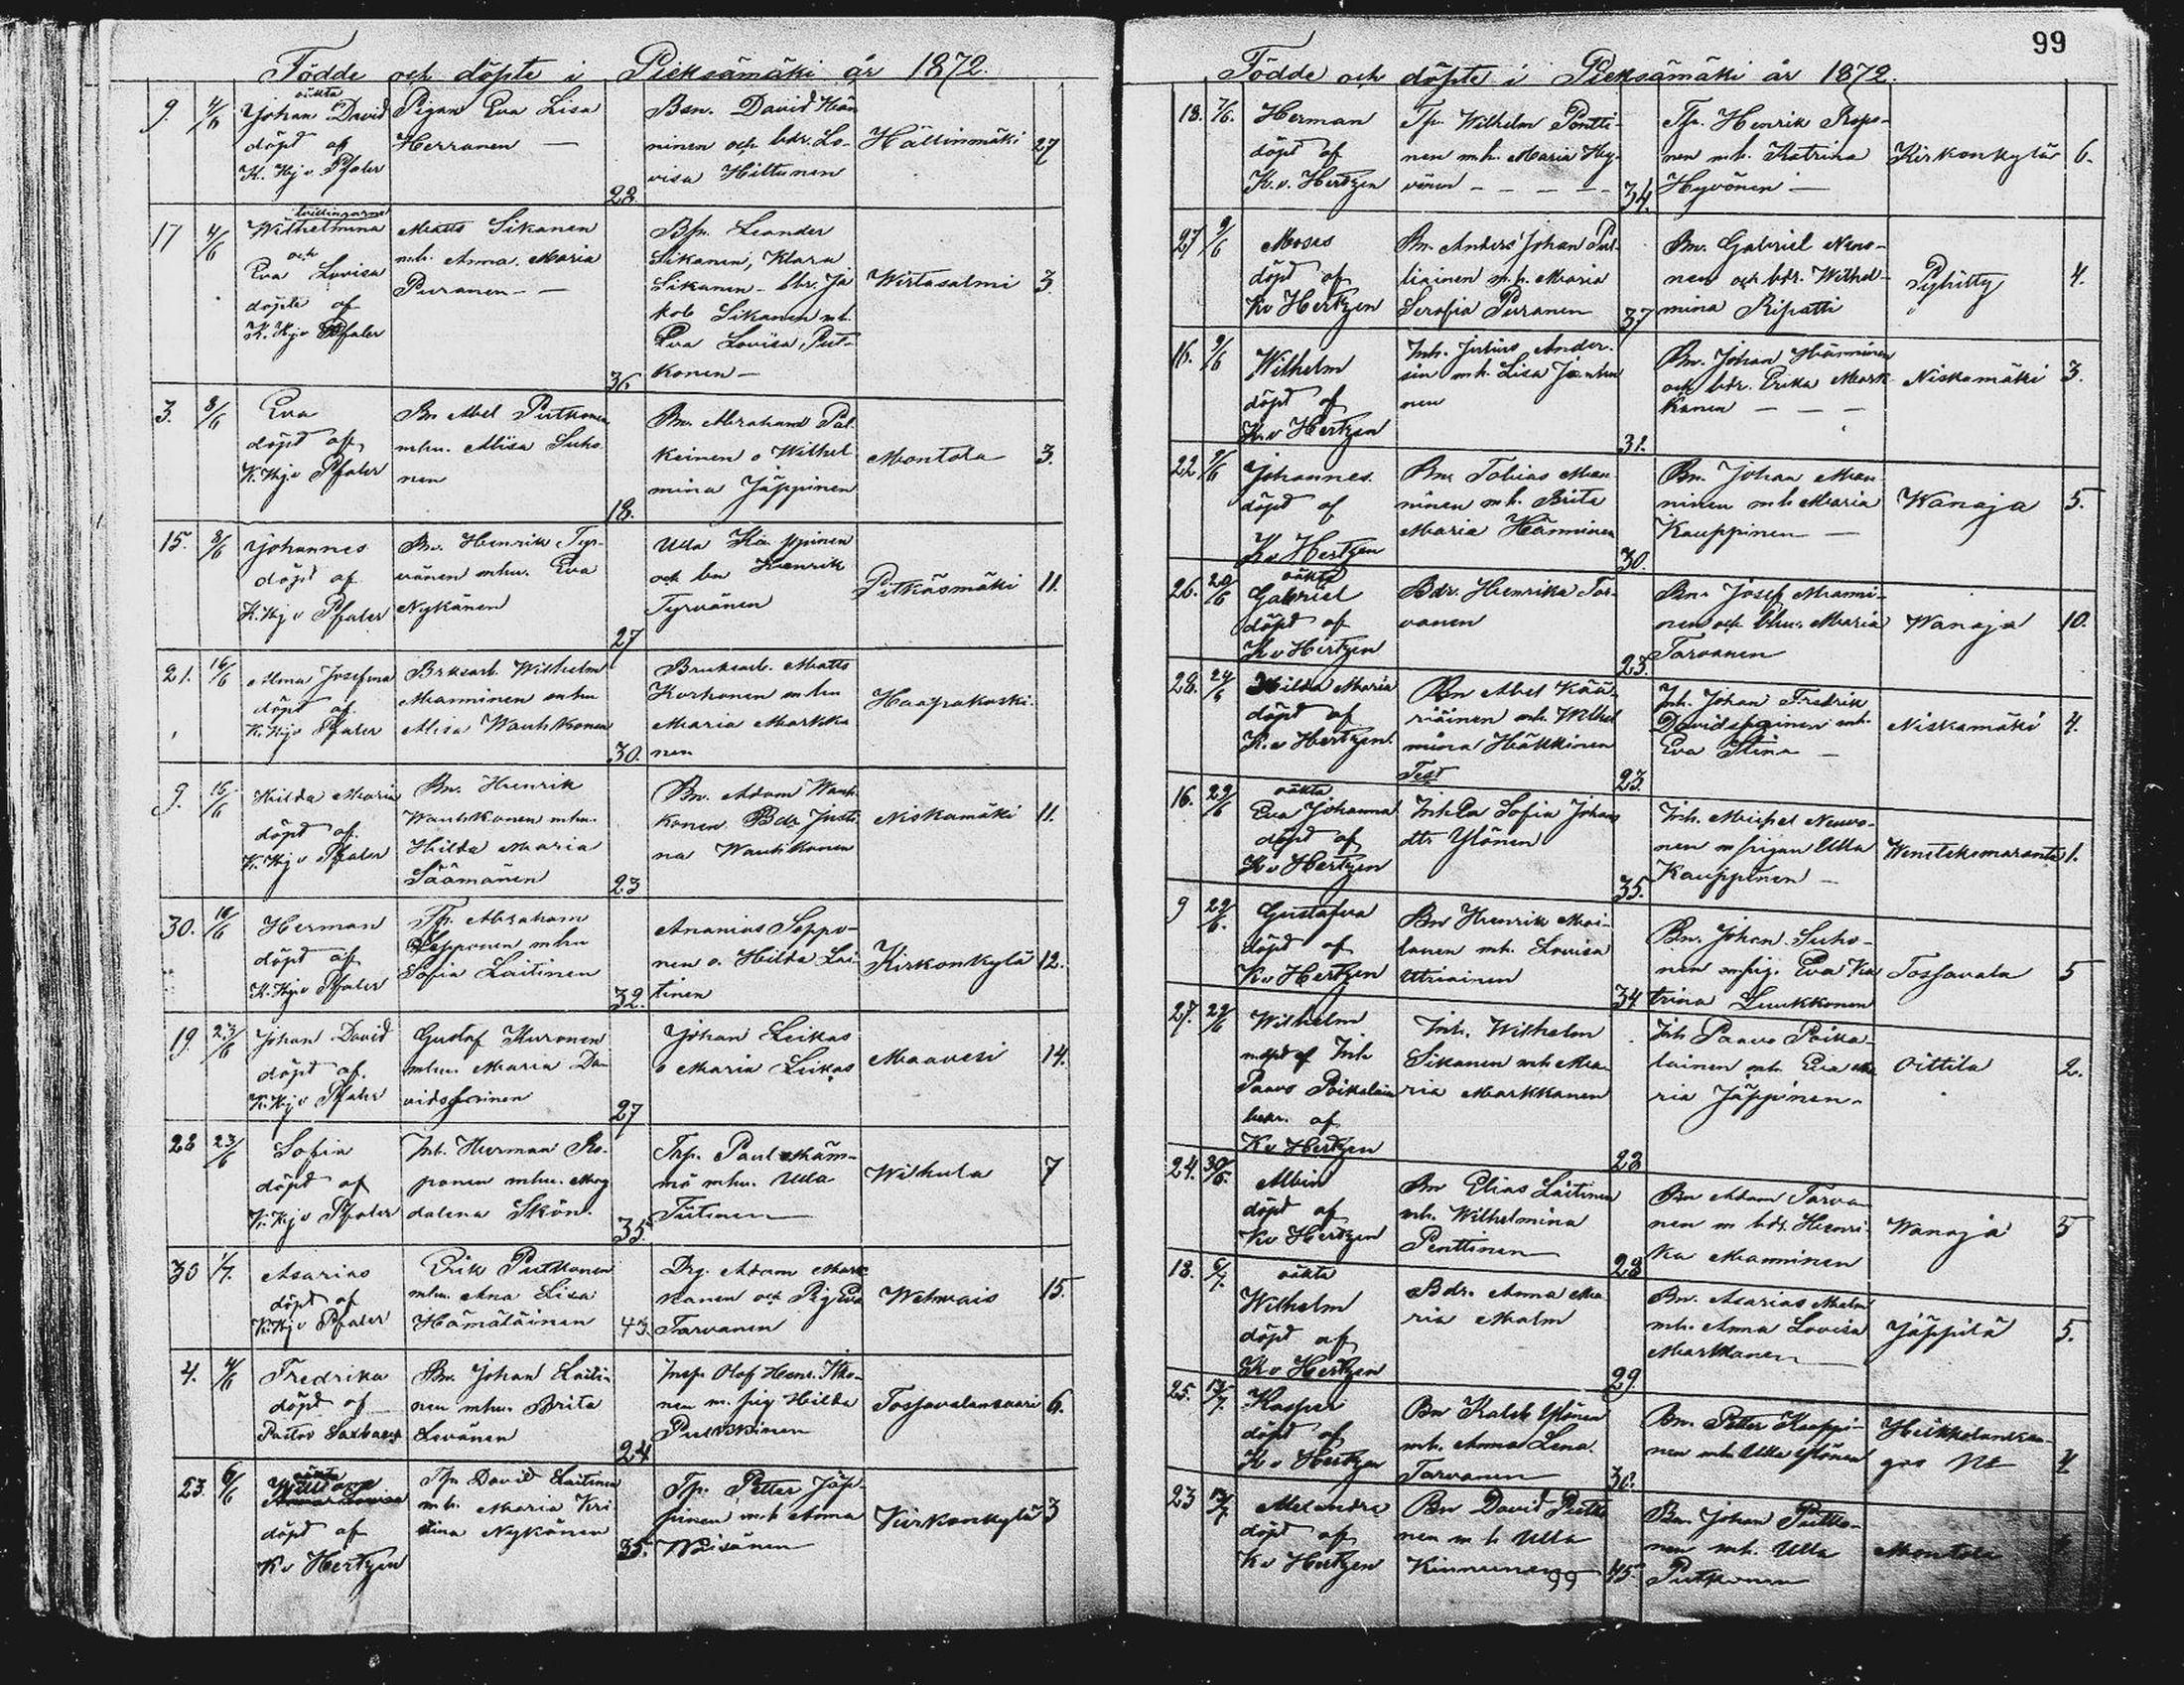 99
Födde och döpte i Pieksämäki år 1872.
9. 4/6 oäkta Johan David döpt af K. Kj. v Pfaler
Pigan Eva Lisa Herranen —
28.
Bsn. David Hänninen och bdr. Lovisa Hiltunen
Hällinmäki 27
17 4/6 tvillingarne Wilhelmina och Eva Lovisa döpte af K. Kj. v Pfaler
Matts Sikanen m.h. Anna Maria Puranen — —
36
Bsn. Leander Sikanen, Klara Sikanen - bbr. Jakob Sikanen mh. Eva Lovisa Putkonen —
Wirtasalmi 3
3. 8/6 Eva döpt af K. Kj. v Pfaler
Bn Abel Putkonen mhu. Alisa Suhonen
18.
Bn. Abraham Palkeinen o Wilhelmina Jäppinen
Montola 3.
15. 8/6 Johannes döpt af K. Kj v Pfaler
Bn. Henrik Tyrvänen mhu. Eva Nykänen
27
Ulla Kauppinen och bn Henrik Tyrvänen
Pitkäsmäki 11.
21. 16/6 Alma Josefina döpt af K. Kj v Pfaler
Brksarb. Wilhelm Manninen mhu Alisa Wauhkonen
30.
Bruksarb. Matts Korhonen mhu Maria Markkanen
Haapakoski.
9. 16/6 Hilda Maria döpt af K. Kj v Pfaler
Bn. Henrik Wauhkonen mhu. Hilda Maria Säämänen
23
Bn. Adam Wauhkonen Bdr Justina Wauhkonen
Niskamäki 11.
30. 16/6 Herman döpt af K. Kj v Pfaler
Tp. Abraham Sepponen mhu Sofia Laitinen
32.
Ananias Sepponen o. Hilda Laitinen
Kirkonkylä 12.
19. 23/6 Johan David döpt af K. Kj v Pfaler
Gustaf Kuronen mhu. Maria Davidspoinen
27
Johan Leikas o Maria Leikas
Maavesi 14.
28 23/6 Sofia döpt af K. Kj v Pfaler
Inh. Herman Roponen mhu. Magdalena Skön.
35.
Trp. Paul Hämmö mhu. Ulla Tiitinen
Wilhula 7
30 1/7. Asarias döpt af K. Kj v Pfaler
Erik Putkonen mhu. Ana Lisa Hämäläinen
43.
Drg. Adam Markkanen och Pig Eva Tarvanen
Wehmais 15.
4. 4/6 Fredrika döpt af Pastor Saxbaeck
Bn. Johan Laitinen mhu. Brita Levänen
24
Insp. Olof Henr. Ikonen m. pig Hilda Pulkkinen
Tossavalansaari 6.
23. 6/6 oäkta döpt af K v Hertzen
Tp. David Laitinen mh. Maria Kristina Nykänen
35.
Tp. Petter Jäppinen mh Anna Wäisänen
Kirkonkylä 3
Födde och döpte i Pieksämäki år 1872.
18. 7/6. Herman döpt af K. v. Hertzen
Tp. Wilhelm Ponttinen m.h. Maria Hyvönen — — — —
34.
Tp. Henrik Reponen mh. Katrina Hyvönen —
Kirkonkylä 6.
27 9/6 Moses döpt af Kv Hertzen
Bn. Anders Johan Pulliainen m.h. Maria Serafia Puranen
37
Bn. Gabriel Neuvonen och bdr. Wilhelmina Ripatti
Pyhitty 4.
16. 9/6 Wilhelm döpt af K. v Hertzen
Inh. Julius Andersin mh. Lisa Jantunen
31.
Bn. Johan Hänninen och bdr. Erika Markkanen — — —
Niskamäki 3.
22 9/6 Johannes. döpt af K v Hertzen
Bn. Tobias Manninen mh. Brita Maria Hänninen
30.
Bn. Johan Manninen mh Maria Kauppinen —
Wanaja 5.
26. 20/6 oäkta Gabriel döpt af K v Hertzen
Bdr. Henrika Tarvanen
23.
Bn. Josef Manninen och bhu. Maria Tarvanen
Wanaja 10.
28. 24/6 Hilda Maria döpt af K. v Hertzen.
Bn Abel Kääriäinen mh. Wilhelmina Häkkinen
23.
Inh. Johan Fredrik Davidspoinen mh. Eva Stina —
Niskamäki 4.
16. 29/6 oäkta Eva Johanna döpt af K v Hertzen
Test Inh Da Sofia Johans dtr Ylönen
35.
Inh. Michel Neuvonen m pigan Ulla Kauppinen —
Wenetekmaranta 1.
9 29/6. Gustafva döpt af Kv Hertzen
Bn Henrik Moilanen mh. Lovisa Utriainen
34
Bn. Johan Suhonen m pig. Eva Katrina Luukkonen
Tossavala 5
27. 29/6 Wilhelm nödpt af Inh Paavo Poikolain bekr. af Kv Hertzen
Inh. Wilhelm Sikanen mh Maria Markkanen
28
Inh Paavo Poikolainen mh. Eva Maria Jäppinen.
Oittila 2.
24. 30/6. Albin döpt af Kv Hertzen
Bn Elias Laitinen mh. Wilhelmina Penttinen
28
Bn Adam Tarvanen m bdr. Henrika Manninen
Wanaja 5
18. 6/7. oäkta Wilhelm döpt af K v Hertzen
Bdr. Anna Maria Malm
29.
Bn. Asarias Malm mh. Anna Lovisa Markkanen
Jäppilä 5.
25. 13/7. Kasper döpt af K v Hertzen
Bn Kaleb Ylönen mh. Anna Lena Tarvanen
30.
Bn. Petter Kauppinen mh Ulla Ylönen
4
23 13/7 Alexandra döpt af K v Hertzen
Bn David Putkonen m h Ulla Kinnunen
99
45.
Bn. Johan Putkonen mh. Ulla Putkonen
Montola